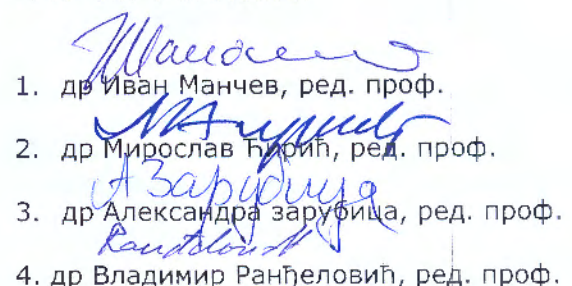 1. др Иван Манчев, ред. проф.
2. др Мирослав Ћирић, ред. проф.
А Зарубица
3. др Александра зарубица, ред. проф.
4. др Владимир Ранђеловић, ред. проф.